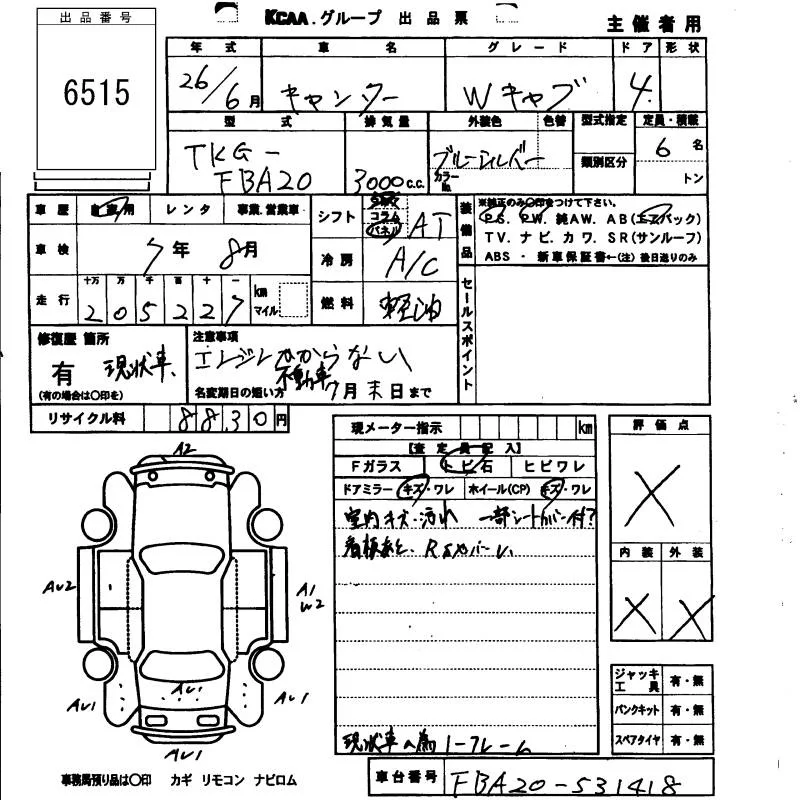 出品番号
6515
KCAA.グループ 出品票
主催者用
年式 車名 グレード ドア 形状
26/6月 キャンター Wキャブ 4
型式 排気量 外装色 色替 型式指定 定員・積載
TKG-FBA20 3000c.c. ブルーシルバー カラーNo. 類別区分 6名 トン
車歴 自家用 レンタ 事業.営業車
シフト コラム パネル AT
装備品
※純正のみ○印をつけて下さい。
P.S. P.W. 純AW. AB(エアバック)
TV. ナビ. カワ. SR(サンルーフ)
ABS ・ 新車保証書←(注) 後日送りのみ
車検 7年 8月
冷房 A/C
走行 十万 万 千 百 十 一 km マイル
205227
燃料 軽油
セールスポイント
修復歴 箇所
有 現状車、
(有の場合は○印を)
注意事項
エンジンかからない
不動車
名変期日の短い方 7月末日まで
リサイクル料 8830円
現メーター指示 km
【査定員記入】
Fガラス トビ石 ヒビワレ
ドアミラー キズ・ワレ ホイール(CP) キズ・ワレ
室内キズ・汚れ 一部シートカバー付?
看板あと、
現状車の為 1-フレーム
評価点
X
内装 外装
X X
A2
AU2
A1
W2
AU1
AU1
AU1
AU1
ジャッキ工具 有・無
パンクキット 有・無
スペアタイヤ 有・無
事務局預り品は○印 カギ リモコン ナビロム
車台番号 FBA20-531418